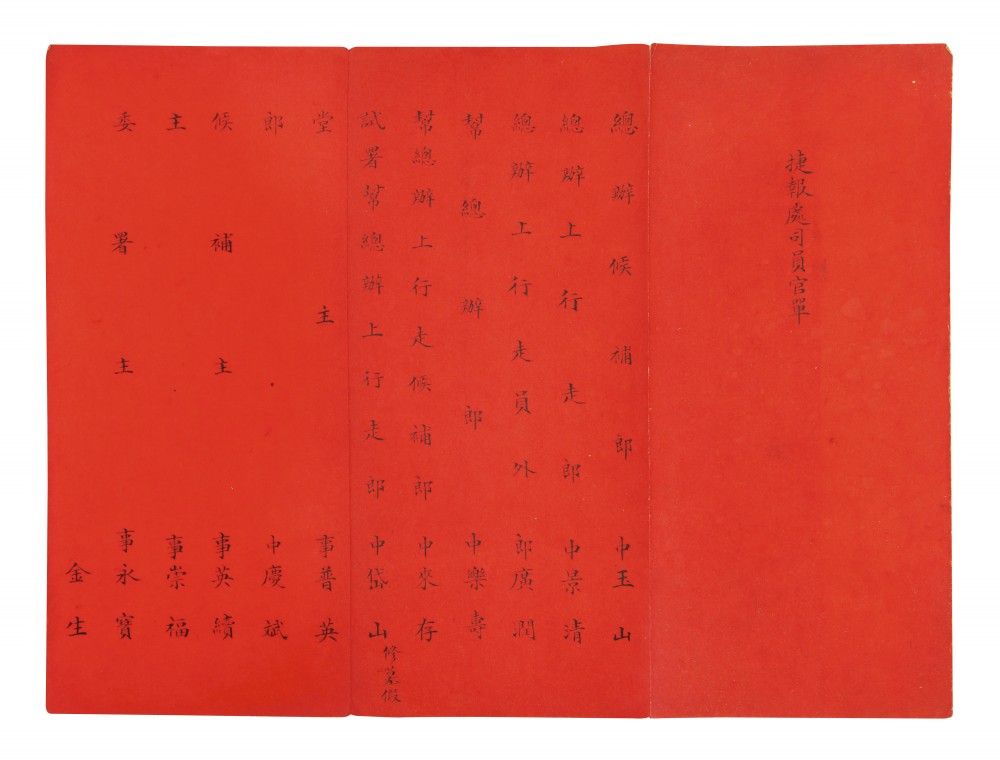 捷報處司員官單
總辦候補郎中玉山
總辦上行走郎中景清
總辦上行走員外郎廣潤
幫總辦郎中樂壽
幫總辦上行走候補郎中來存
試署幫總辦上行走郎中岱山
修墓假
堂主事普英
郎中慶斌
候補主事英績
主事崇福
委署主事永寶
金生